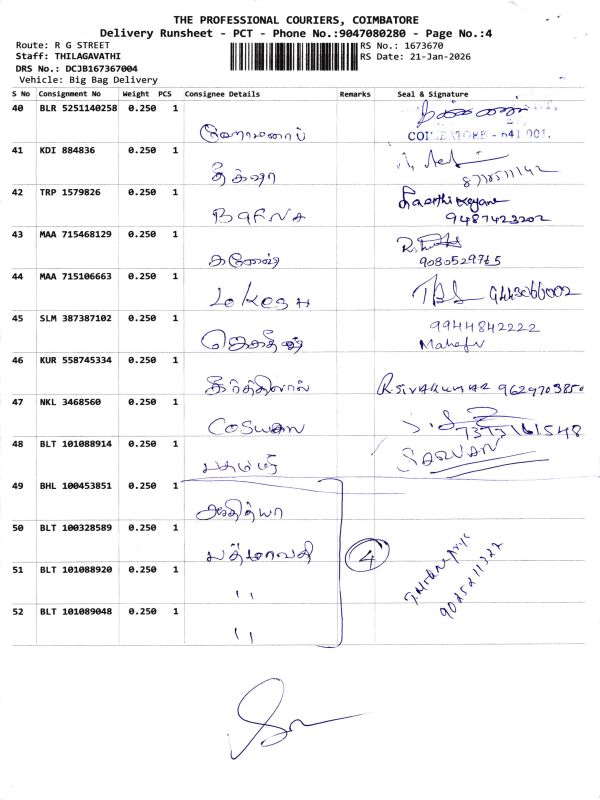 THE PROFESSIONAL COURIERS, COIMBATORE
Delivery Runsheet - PCT - Phone No.:9047080280 - Page No.:4
Route: R G STREET
Staff: THILAGAVATHI
DRS No.: DCJB167367004
Vehicle: Big Bag Delivery
RS No.: 1673670
RS Date: 21-Jan-2026
S No Consignment No Weight PCS Consignee Details Remarks Seal & Signature
40 BLR 5251140258 0.250 1
COIMBATORE - 641 001.
41 KDI 884836 0.250 1
தீக்ஷா
42 TRP 1579826 0.250 1 Kaarthikeyane
9487423202
43 MAA 715468129 0.250 1
கணேஷ் 9080529765
44 MAA 715106663 0.250 1
Lokesh TBS 9443066002
45 SLM 387387102 0.250 1 9944842222
46 KUR 558745334 0.250 1
கீர்த்திலால் R SIVAKUMAR 9629703850
47 NKL 3468560 0.250 1
COSWAN 7373161548
48 BLT 101088914 0.250 1 SARVAN
49 BHL 100453851 0.250 1
ஆதித்யா
50 BLT 100328589 0.250 1
பத்மாவதி 4
51 BLT 101088920 0.250 1
" 9025211322
52 BLT 101089048 0.250 1
"